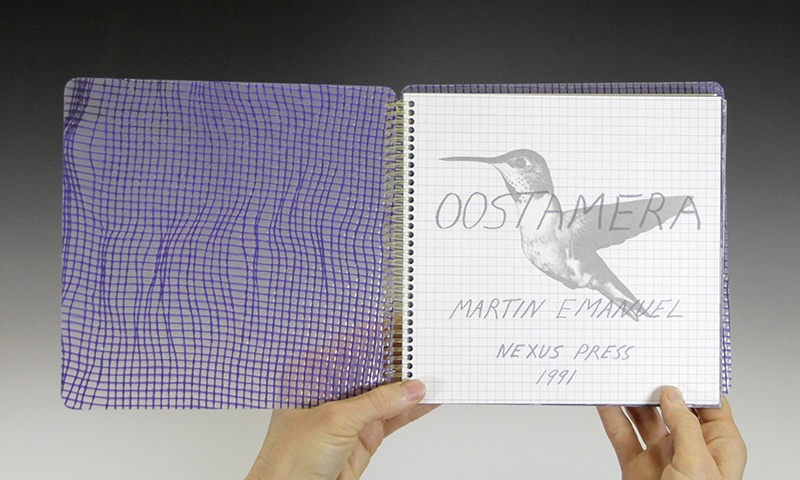 OOSTAMERA
MARTIN EMANUEL
NEXUS PRESS
1991